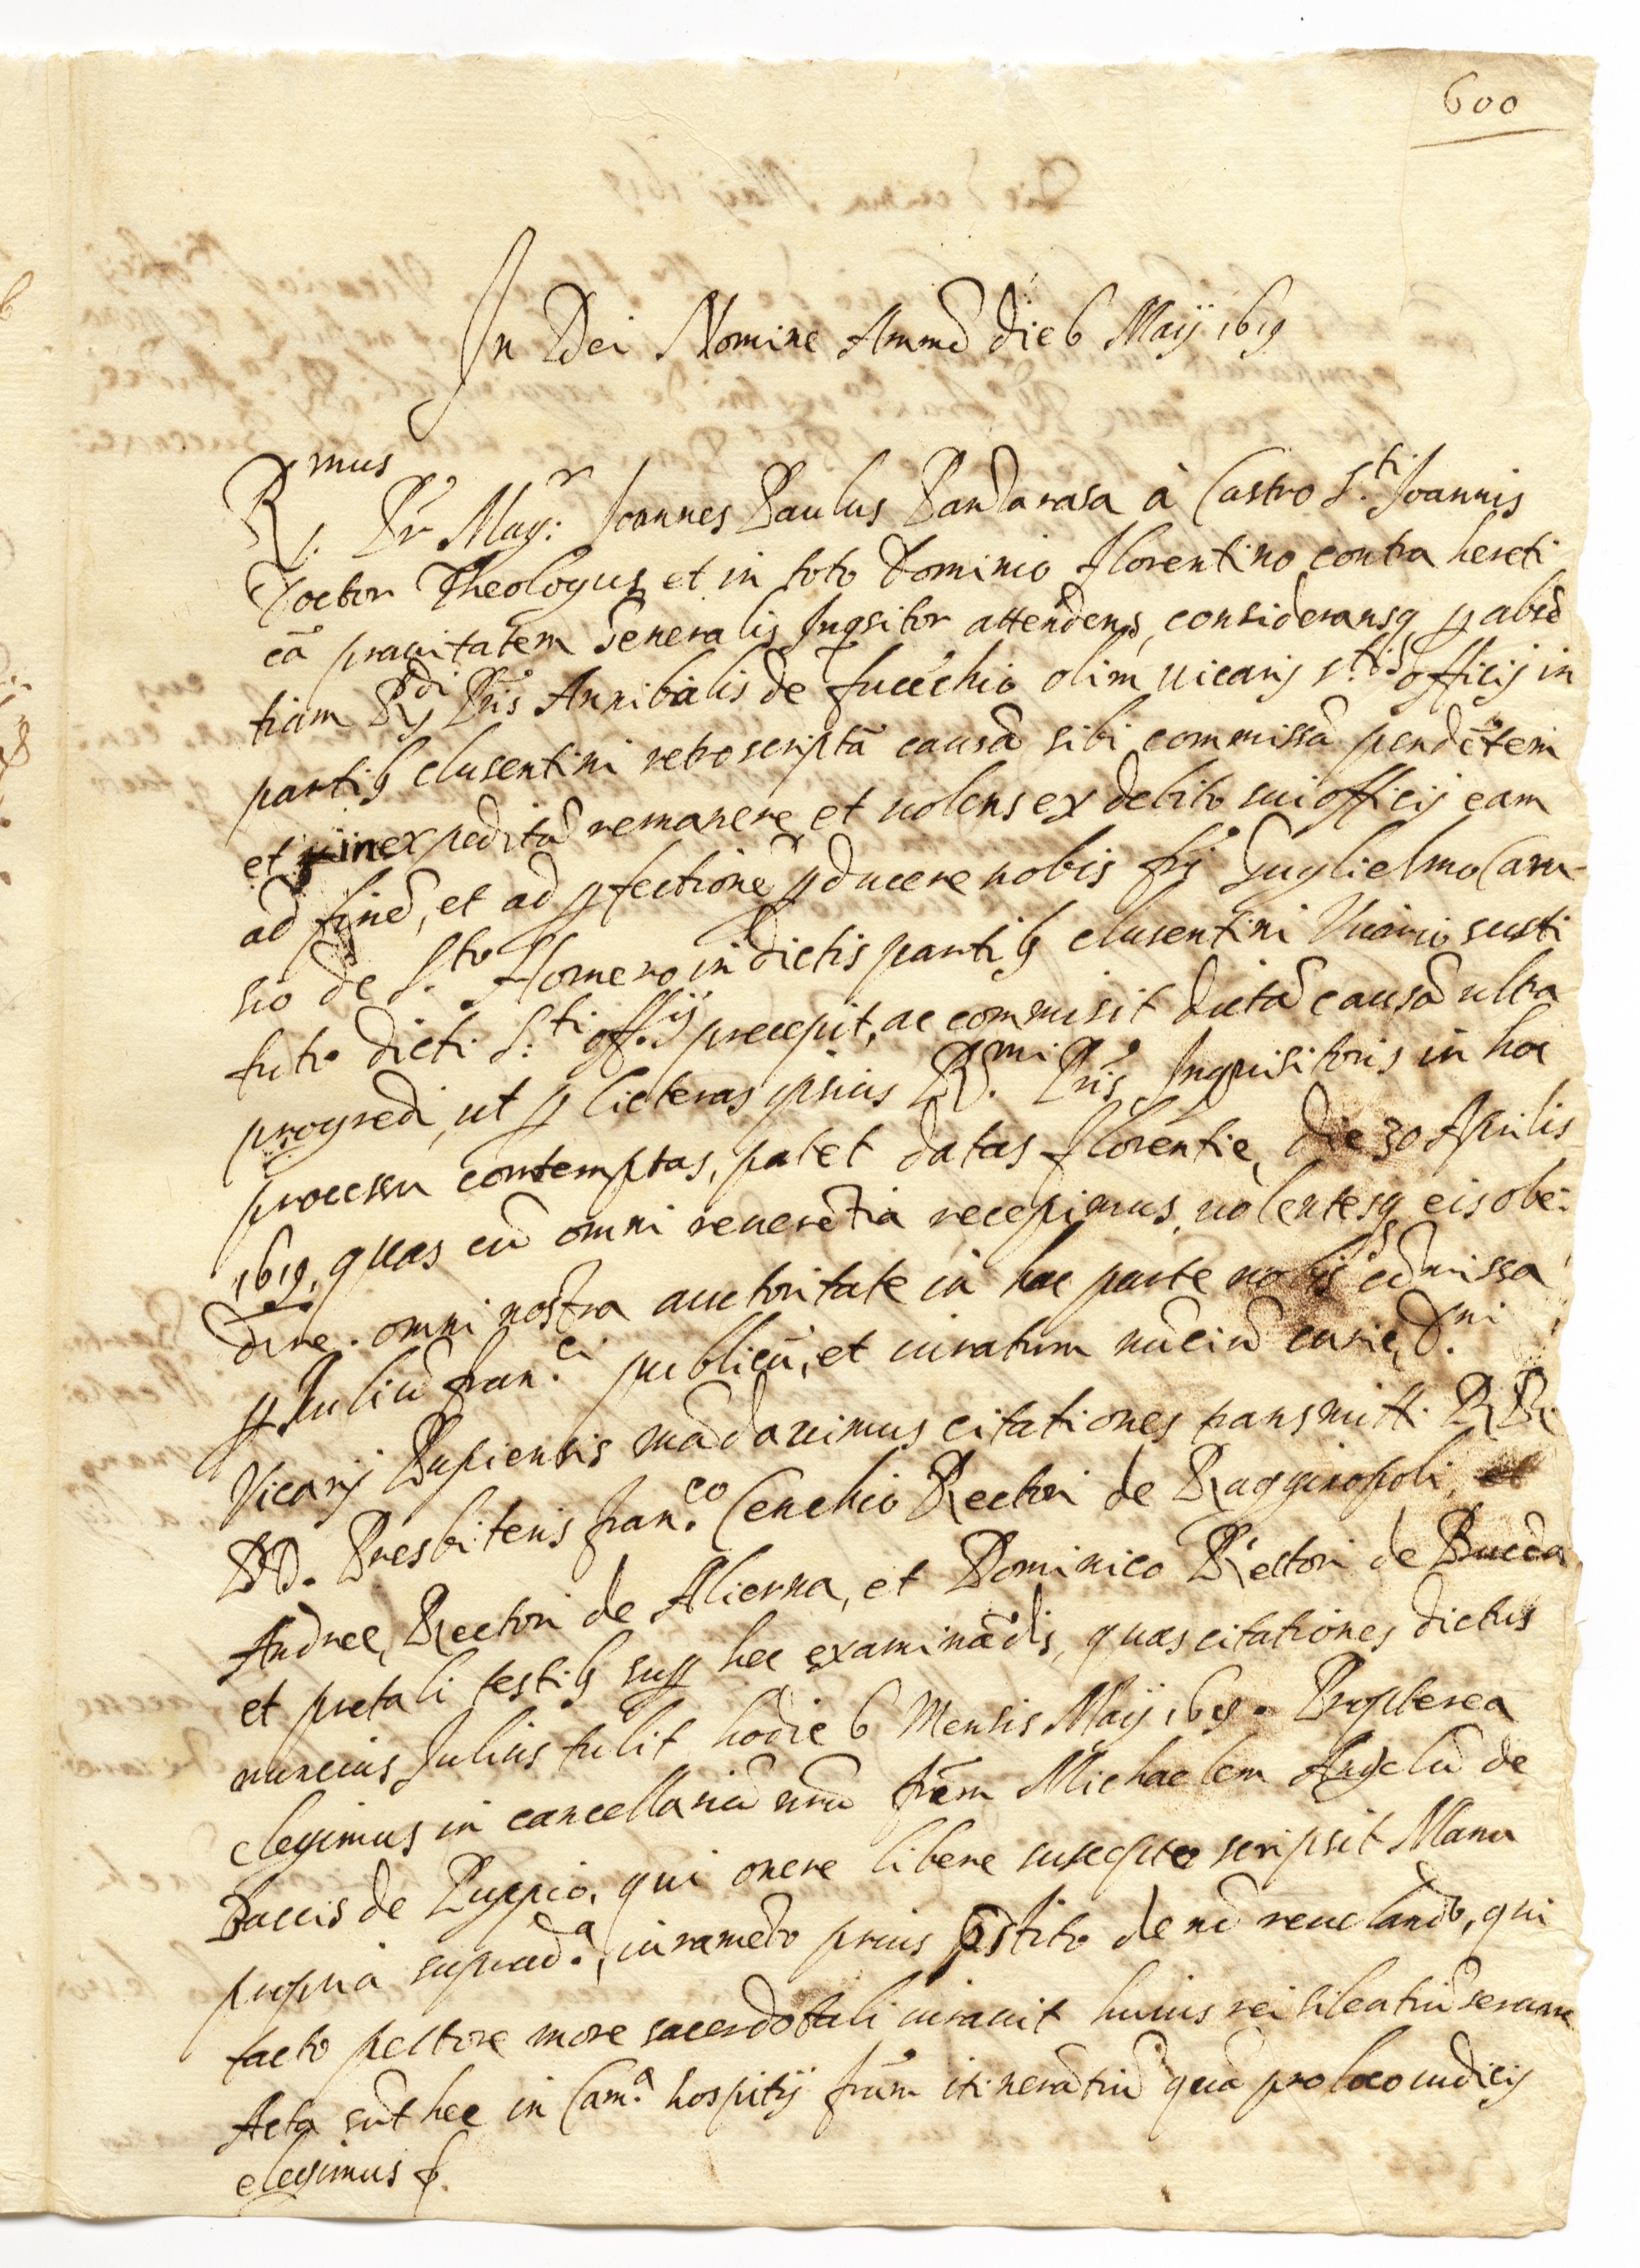 600
In Dei Nomine Ammē die 6 Maij 1619
Rmus Pr̄ Mag.r Joannes Paulus Pandarasa à Castro S.ti Joannis
Doctor Theologus et in toto Dominio florentino contra hereti
cā prauitatem Generalis Inqsitor attendens, consideransq ꝑ absē
tiam Rdi Pris Annibalis de fucechio olim uicarij s.ti officij in
partib clusentini retroscriptā causā sibi commissā pendētem
et inexpeditā remanere et uolens ex debito sui officij eam
ad finē, et ad ꝑfectionē ꝑducere nobis fri Guglielmo Caru-
sio de S.to Homero in dictis partib clusentini Vicario susti
tuto dicti S.ti off.ij precepit, ac commisit dictā causā ultra
progredi, ut ꝑ licteras ipsius R.mi Pris Inquisitoris in hoc
processu contemptas, patet datas florentie, die 30 Aprilis
1619, quas cū omni reuerētia recepimus, uolentesq eis obe:
dire. omni nostra auctoritate in hac parte nobis cōmissa
ꝑ Juliū fran.ci publicū, et iuratum nūciū curie D.ni
Vicarij Pupiensis mādauimus citationes transmitti RR.
DD. Presbiteris fran.co Cenchio Rectori de Ragginopoli, et
Andree Rectori de Alierna, et Dominico Rectori de Bucena
et pretali testib suꝑ hec examinādis, quas citationes dictus
nuncius Julius tulit hodie 6 Mensis Maij 1619. Propterea
elegimus in cancellariū nrū frēm Michaelem Angelū de
Baccis de Puppio, qui onere libere suscepto scripsit Manu
propria suprad.a, iuramēto prius p̄stito de nō reuelando, qui
tacto pectore more sacerdotali iurauit huius rei silentiū seruare
Acta sūt hec in Cam.a hospitij frūm itinerātiū quā pro loco iudicij
elegimus &.